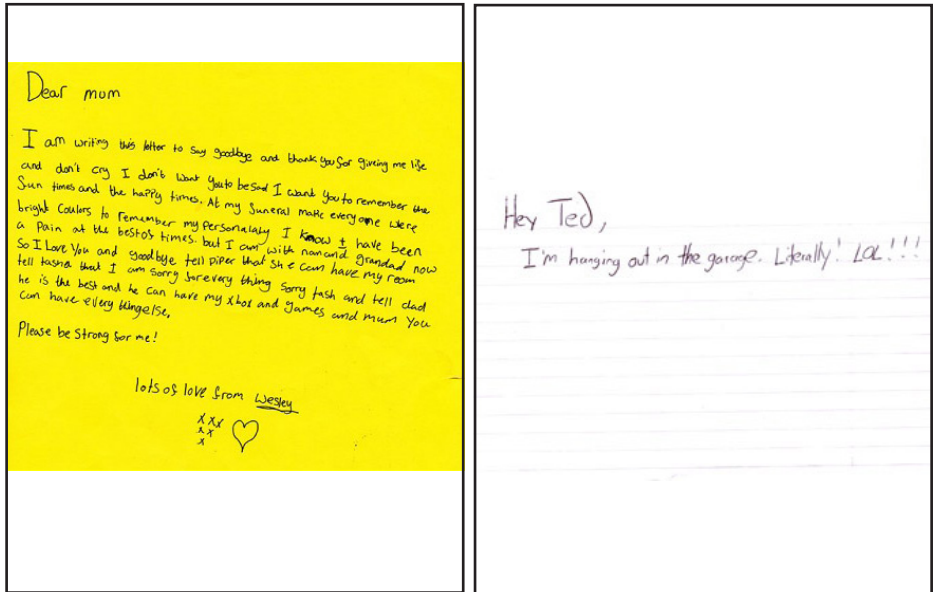 Dear mum
I am writing this letter to say goodbye and thank you for giveing me life
and don't cry I don't want you to be sad I want you to remember the
fun times and the happy times. At my funeral make every one were
bright coulors to remember my personalaty I know I have been
a pain at the best of times. but I am with nan and grandad now
so I Love You and goodbye tell piper that she can have my room
tell tasha that I am sorry for every thing sorry tash and tell dad
he is the best and he can have my xbox and games and mum You
can have every thing else.
Please be strong for me!
lots of love from Wesley
x x x
x x
x
Hey Ted,
I'm hanging out in the garage. Literally! LOL!!!